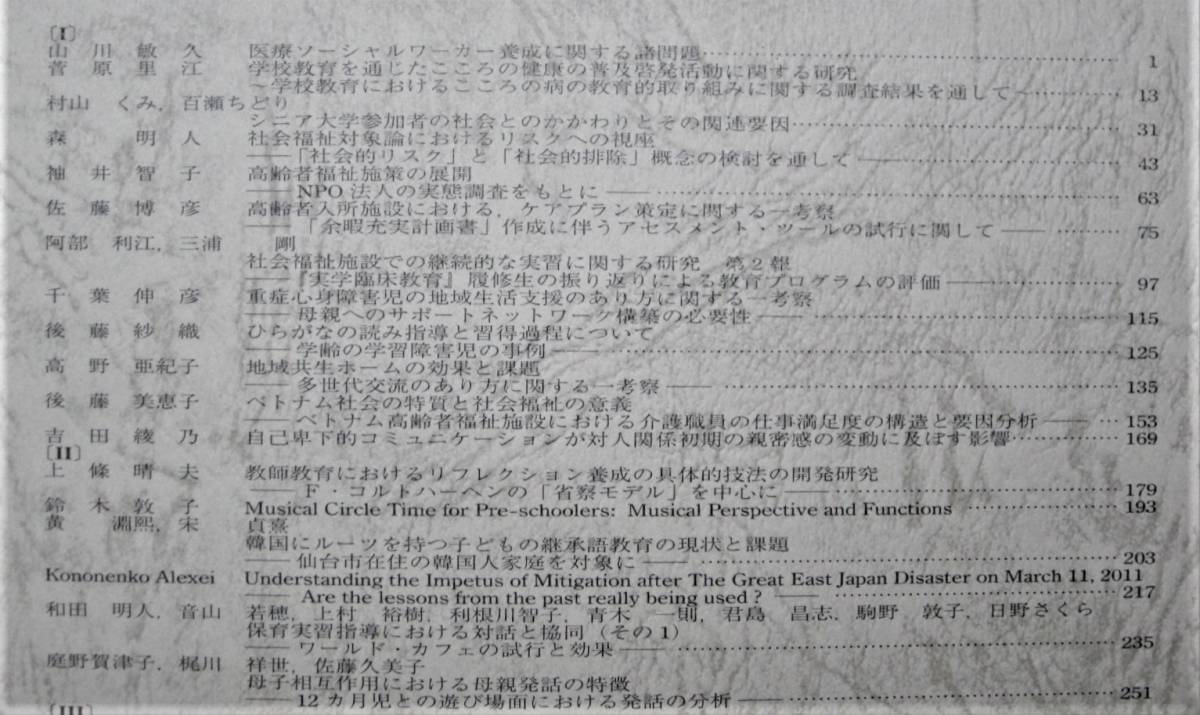 〔I〕
山川敏久 医療ソーシャルワーカー養成に関する諸問題 1
菅原里江 学校教育を通じたこころの健康の普及啓発活動に関する研究
～学校教育におけるこころの病の教育的取り組みに関する調査結果を通して～ 13
村山 くみ, 百瀬ちどり
シニア大学参加者の社会とのかかわりとその関連要因 31
森 明人 社会福祉対象論におけるリスクへの視座
――「社会的リスク」と「社会的排除」概念の検討を通して―― 43
袖井智子 高齢者福祉施策の展開
――NPO法人の実態調査をもとに―― 63
佐藤博彦 高齢者入所施設における, ケアプラン策定に関する一考察
――「余暇充実計画書」作成に伴うアセスメント・ツールの試行に関して―― 75
阿部 利江, 三浦 剛
社会福祉施設での継続的な実習に関する研究 第2報
――『実学臨床教育』履修生の振り返りによる教育プログラムの評価―― 97
千葉伸彦 重症心身障害児の地域生活支援のあり方に関する一考察
――母親へのサポートネットワーク構築の必要性―― 115
後藤紗織 ひらがなの読み指導と習得過程について
――学齢の学習障害児の事例―― 125
高野亜紀子 地域共生ホームの効果と課題
――多世代交流のあり方に関する一考察―― 135
後藤美恵子 ベトナム社会の特質と社会福祉の意義
――ベトナム高齢者福祉施設における介護職員の仕事満足度の構造と要因分析―― 153
吉田綾乃 自己卑下的コミュニケーションが対人関係初期の親密感の変動に及ぼす影響 169
〔II〕
上條晴夫 教師教育におけるリフレクション養成の具体的技法の開発研究
――F・コルトハーヘンの「省察モデル」を中心に―― 179
鈴木敦子 Musical Circle Time for Pre-schoolers: Musical Perspective and Functions 193
黄 淵熙, 宋 貞熹
韓国にルーツを持つ子どもの継承語教育の現状と課題
――仙台市在住の韓国人家庭を対象に―― 203
Kononenko Alexei Understanding the Impetus of Mitigation after The Great East Japan Disaster on March 11, 2011
―― Are the lessons from the past really being used? ―― 217
和田 明人, 音山 若穂, 上村 裕樹, 利根川智子, 青木 一則, 君島 昌志, 駒野 敦子, 日野さくら
保育実習指導における対話と協同（その1）
――ワールド・カフェの試行と効果―― 235
庭野賀津子, 梶川 祥世, 佐藤久美子
母子相互作用における母親発話の特徴
――12カ月児との遊び場面における発話の分析―― 251
〔III〕